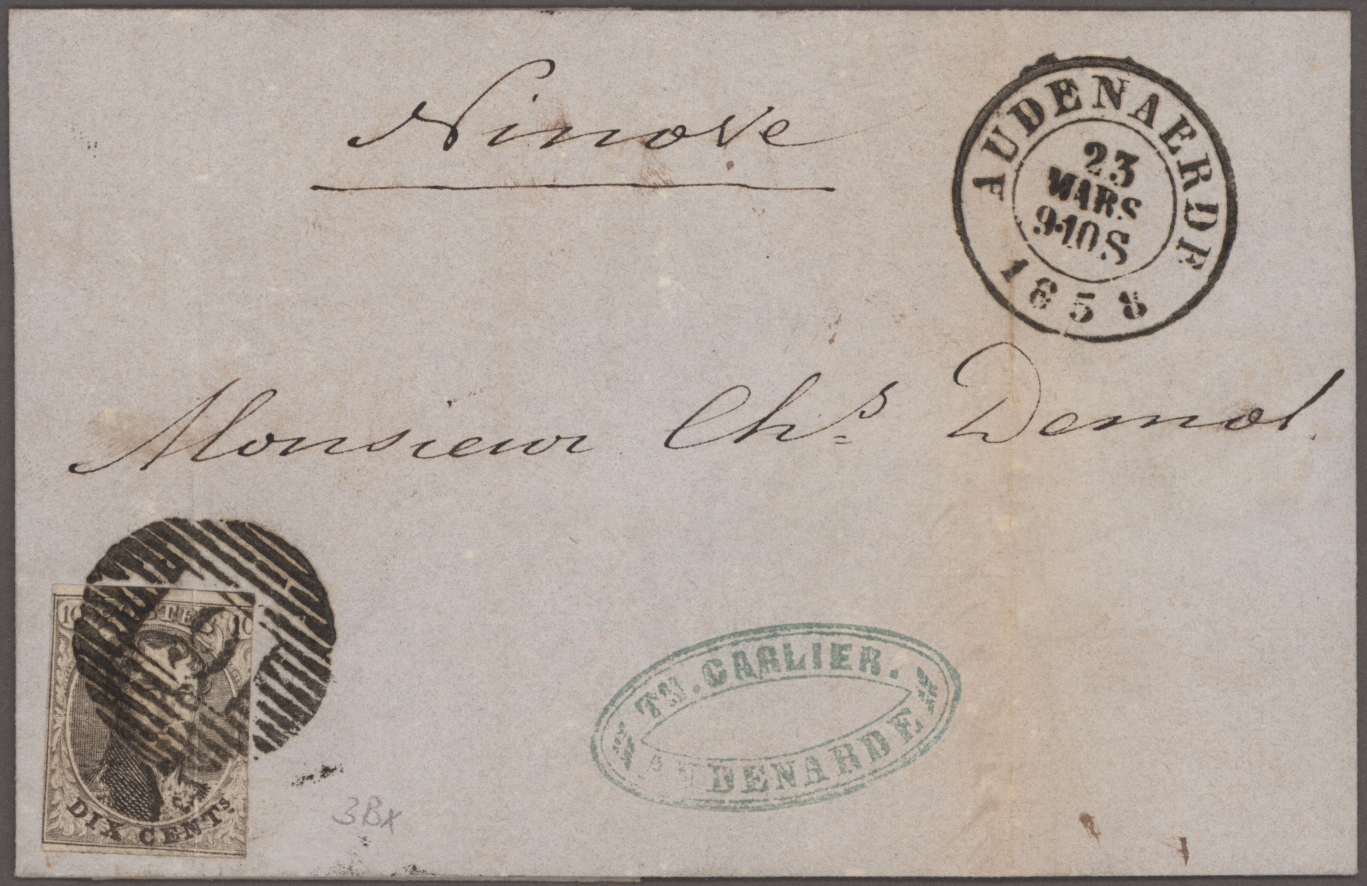 Ninove
AUDENAERDE
23
MARS
9-10 S
1858
Monsieur Chs. Demol.
10 10
DIX CENTS.
TH. CARLIER.
AUDENARDE
3Bx